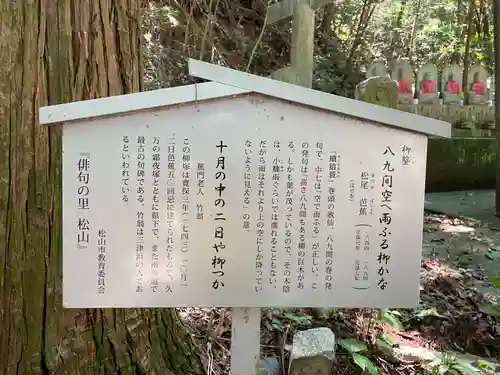 柳塚
八九間空へ雨ふる柳かな
松尾 芭蕉
まつお ばしょう
(一六四四~一六九四)
『続猿蓑』巻頭の歌仙、八九間の巻の発
句で、中七は「空で雨ふる」が正しい。こ
の発句は「高さ八九間もある柳の巨木があ
る。しかも葉が茂っているので、その木陰
は、小糠雨ぐらいでは濡れることもない。
だから雨はそれより上の空にしか降ってい
ないように見える」の意。
十月の中の二日や柳つか
蕉門老人 竹翁
この柳塚は寛保三年(一七四三)
二日芭蕉五〇回忌に建てられたもので、久
万の霜夜塚とともに県下で、また南海道で
最古の句碑である。竹翁は三津浜の人であ
るといわれている。
松山市教育委員会
『俳句の里 松山』